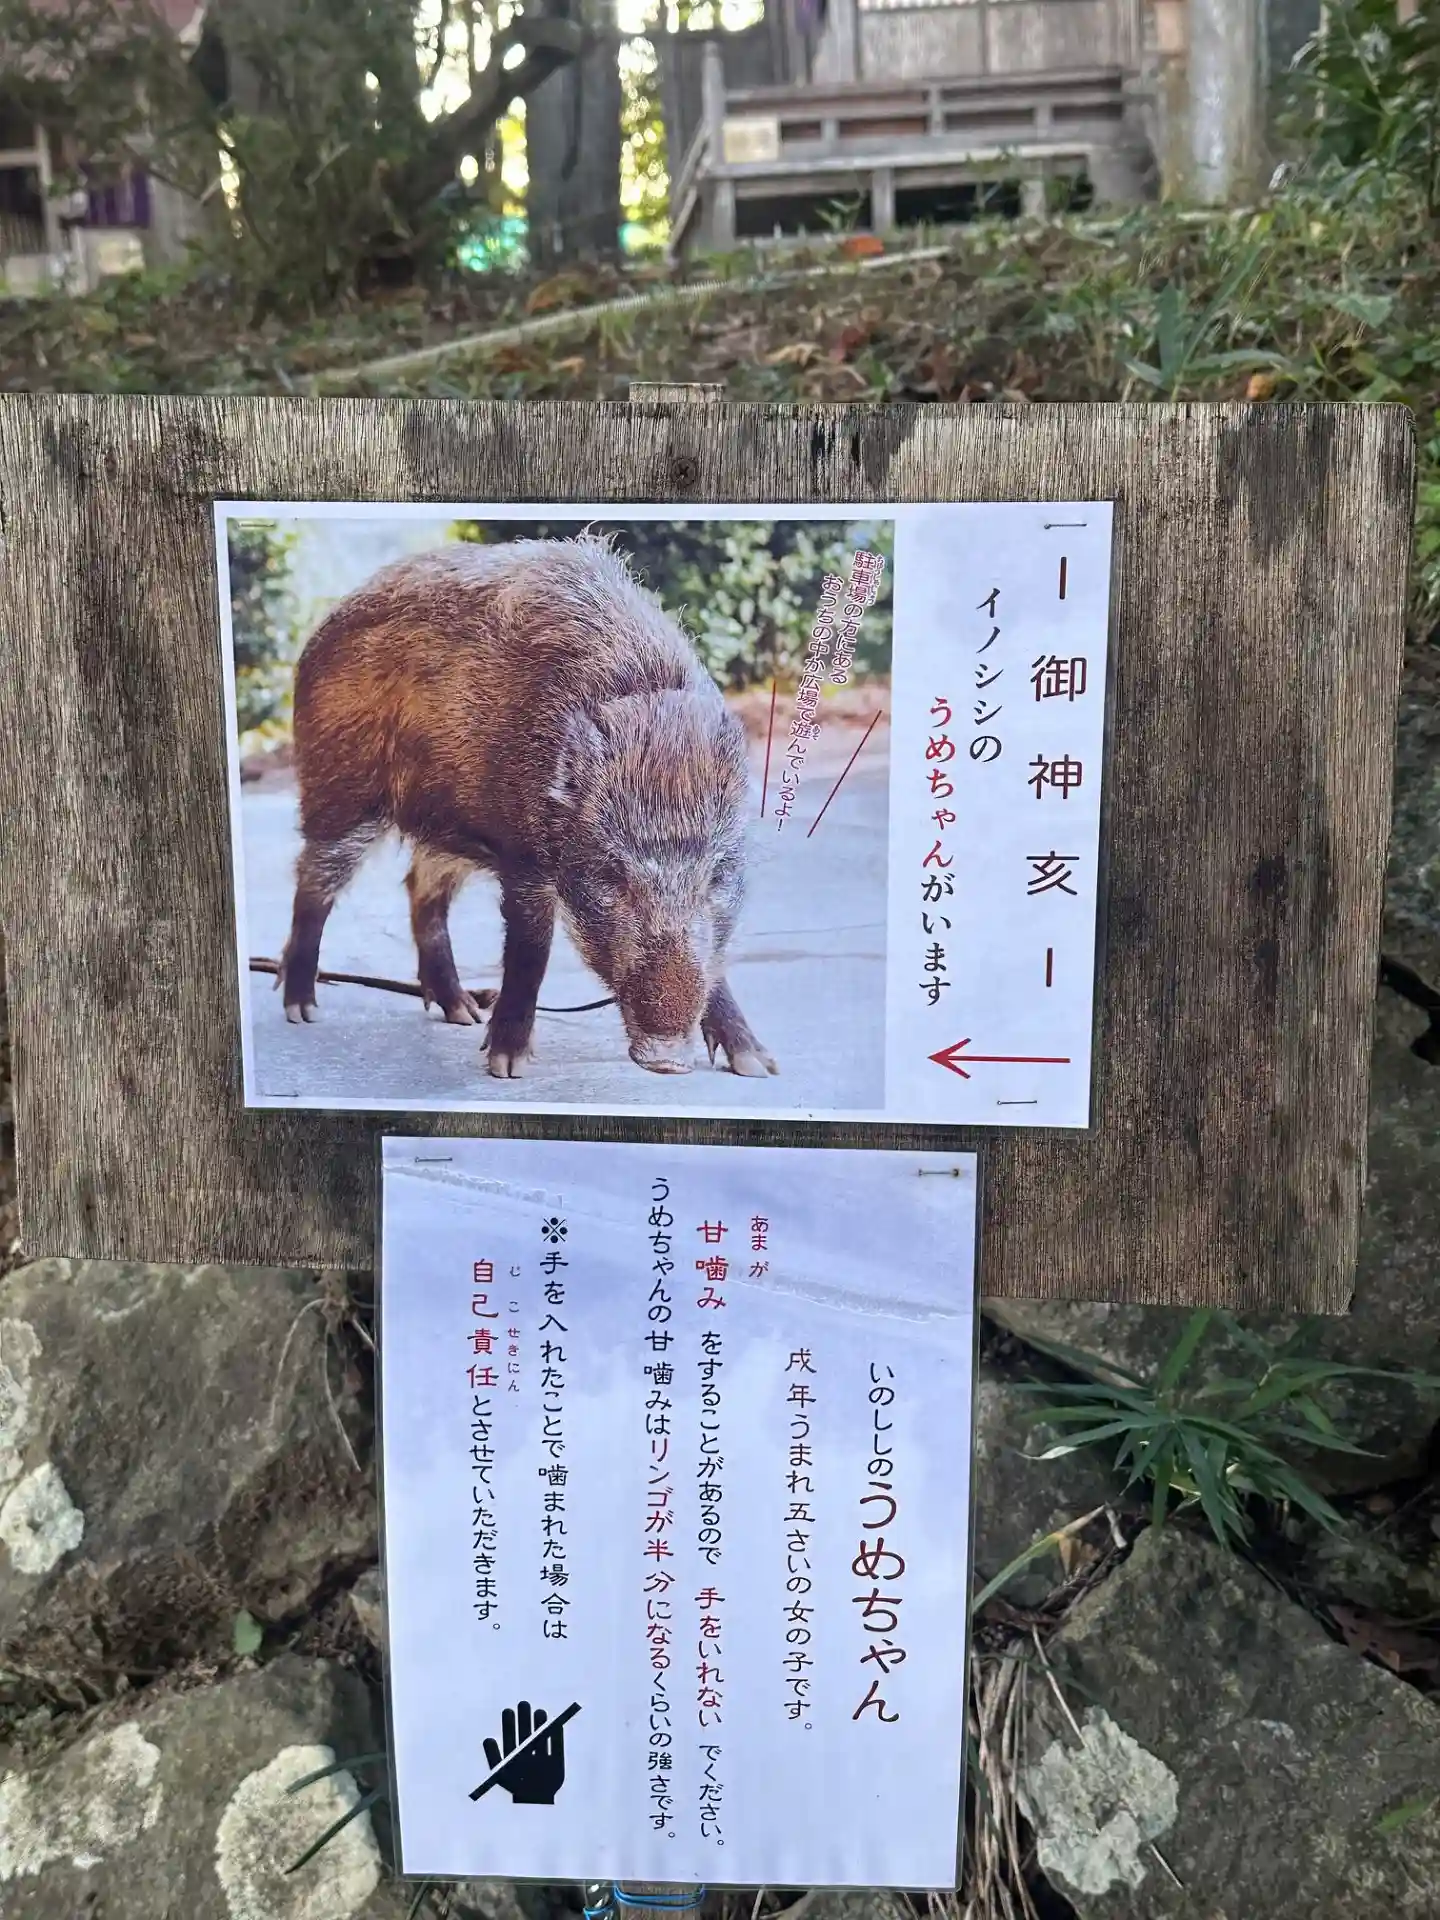 －御神亥－
イノシシの
うめちゃんがいます
駐車場の方にある
おうちの中か広場で遊んでいるよ！
いのししのうめちゃん
戌年うまれ五さいの女の子です。
あまが
甘噛みをすることがあるので 手をいれない でください。
うめちゃんの甘噛みはリンゴが半分になるくらいの強さです。
※手を入れたことで噛まれた場合は
じこせきにん
自己責任とさせていただきます。